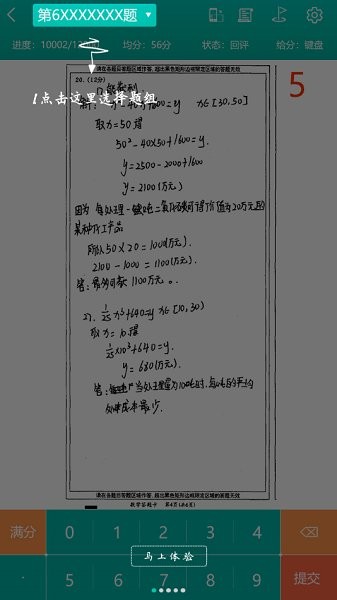 第6XXXXXXX题
进度：10002/12 均分：56分 状态：回评 给分：键盘
请在各题目答题区域作答，超出黑色矩形边框限定区域的答题无效
20.（12分）
5
1点击这里选择题组
取x=50 得
50²-40×50+1600=y.
y=2500-2000+1600
y=2100(万元)
因为 每处理一吨二氧化碳可得价值为20万元的
某种化工产品
所以 50×20=1000(万元).
2100-1000=1100(万元).
答：最多同数 1100万元。
2). 1/25 x³+640=y x∈[10,30)
取x=10得
1/25×10³+640=y.
y=680(万元).
处理成本最少.
请在各题目答题区域作答，超出黑色矩形边框限定区域的答题无效
数学答题卡 第4页(共6页)
满分 0 1 2 3 4
马上体验
5 6 7 8 9 提交